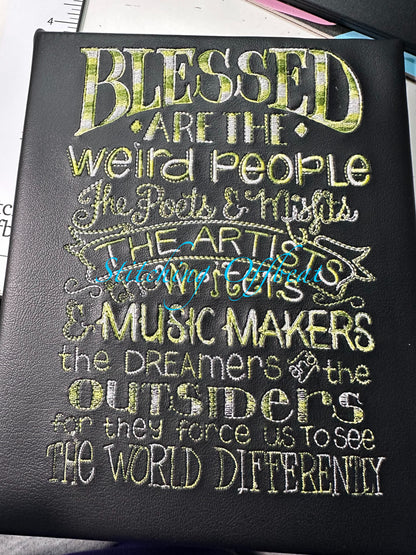 BLESSED
ARE THE
weird people
The Poets & Misfits
THE ARTISTS
Writers
Stitching Offbeat
& MUSIC MAKERS
the DREAMERS and the
OUTSIDERS
for they force us To see
THE WORLD DIFFERENTLY
4